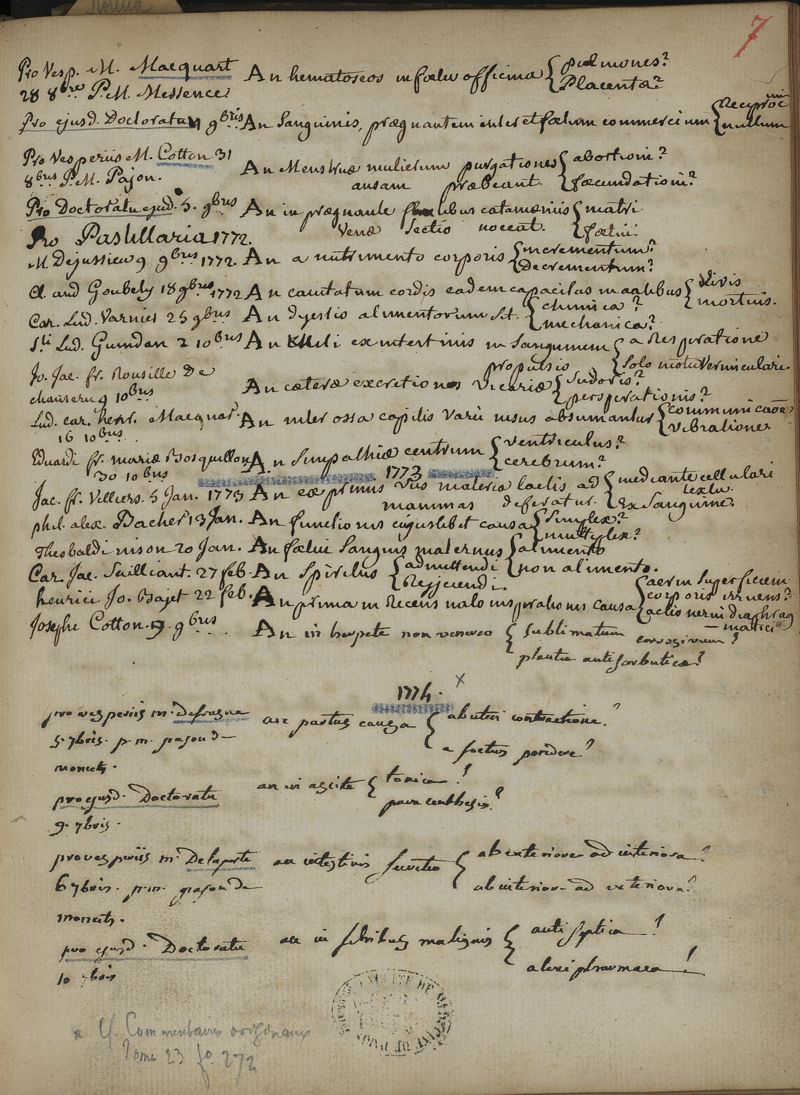 7
Pro Vesp. M. Macquart
28 8bre P. M. Messence
An hematoseos in foetu officina { pulmones?
Placenta?
Pro ejusd. Doctoratu 9bris An Sanguinis, praegnantem inter et foetum commercium { Reciproc
nullum
Pro Vesperiis M. Cotton 31
8bris P. M. Pajon.
An Menstruae mulierum purgationes { abortioni?
ansam praebeant. { foecundationi?
Pro Doctoratu ejusd. 5. 9bus An in praegnante fluentibus catameniis { matri
venae sectio noceat. { foetui.
Pro Pastillaria 1772.
M. Dejussieu 9 9brus 1772. An a nutrimento corporis { incrementum?
Decrementum?
Cl. and Goubely 18 9brus 1772 An cavitatum cordis eadem capacitas in aetatibus { vivis
mortuis.
Car. Lud. Varnier 25 9brus An dygestio alimentorum sit { chimica?
mechanica?
Lud. Guindan 2 10brus An Khili ex intestinis in Sanguinem { a Respiratione
propulsio { Solo motu vermiculari.
Jo. Jac. fr. Rousille De
chamseru 9 10brus
An caeterae excretiones vicariae { Sudoris?
perspirationis?
Lud. car. henr. Macquar.
16 10brus
An inter ossa capitis varii nisus absumantur { communicaoe
vibratione
Eduardi fr. mariae Bosquillon
30 10brus
An Simpathiae centrum { ventriculus?
cerebrum?
1773
Jac. fr. Villiers 5 Jan. 1773 An eae primis viis materia lactis ad { mediante cellulari
textu.
mammas deferatur. { Ex Sanguine.
phil. alex. Bacher 13 Jan. An functionis cujuslibet causa { Simplex?
multiplex?
Theobaldi nison 20 Jan. An foetui Sanguis maternus { alimento
non alimento.
Car. Jac. Saillant. 27 feb. An Spiritus { admittendi
Rejiciendi.
henrici Jo. Bajet 22 feb. An prima in Recens nato inspirationis causa { aer in superficiem
corporis irruens?
actio nervi diaphrag
matici
Josephi Cotton 9. 9brus An in herpete non venereo { sublimatum corrosivum?
plantae antiscorbuticae?
1774. x
pro vesperiis m. defrasne
5. 7bris. p. m. pajon de
moncets.
an partus causa { ab uteri contractione?
a foetus pondere?
pro ejusd. Doctoratu
9. 7bris.
an in ascite { tonica?
paracenthesis?
pro vesperiis m. Delaporte
6 7bris. p. m. pajon de
moncets.
an intestinis suetio { ab exteriore ad interiora?
ab interiore ad exteriora?
pro ejusd. Doctoratu
10 7bris
an in febribus malignis { anti septica?
alexi pharmaca?
x Cf. Commentaires originaux
Tome 23 fo 272